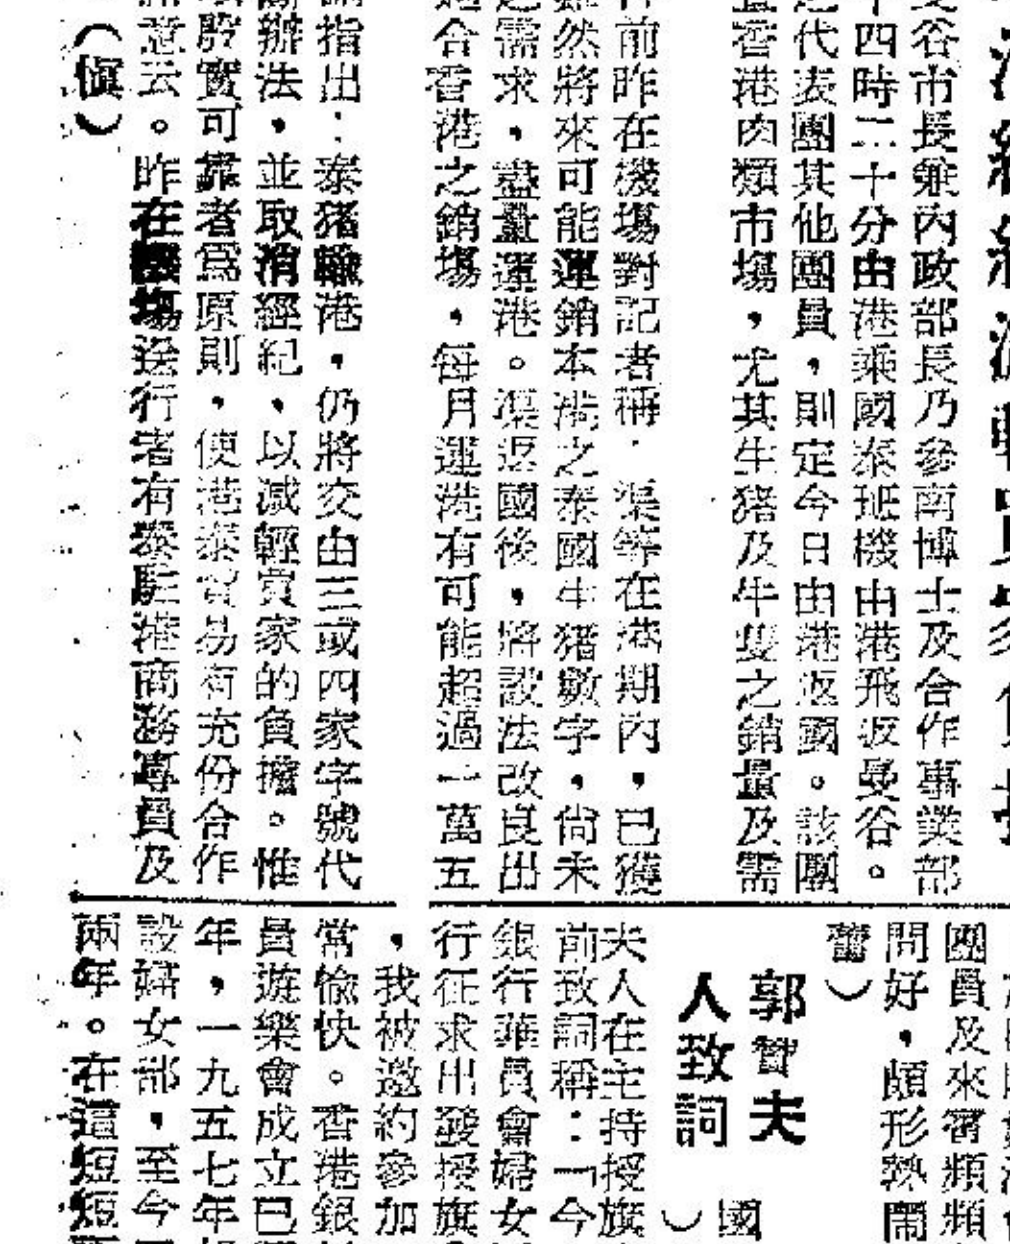 曼谷市長兼內政部長乃參南博士及合作事業部
四時二十分由港乘國泰班機由港飛返曼谷。
之代表團其他團員，則定今日由港返國。該團
香港肉類市場，尤其生猪及牛隻之銷量及需
前昨在機場對記者稱，渠等在港期內，已獲
然將來可能運銷本港之泰國生猪數字，尚未
需求，盡量運港。渠返國後，將設法改良出
合香港之銷場，每月運港有可能超過一萬五
指出：泰猪輸港，仍將交由三或四家字號代
辦法，並取消經紀，以減輕買家的負擔。惟
殷實可靠者爲原則，使港泰貿易有充份合作
意云。昨在機場送行者有泰駐港商務專員及
（愼）
團員及來賓頻頻
問好，頗形熱鬧
）
國
郭贊夫
人致詞
）
夫人在主持授旗
前致詞稱：「今
銀行華員會婦女
行征求出發授旗
，我被邀約參加
常愉快。香港銀
員遊樂會成立已
年，一九五七年
設婦女部，至今
兩年。在這短短